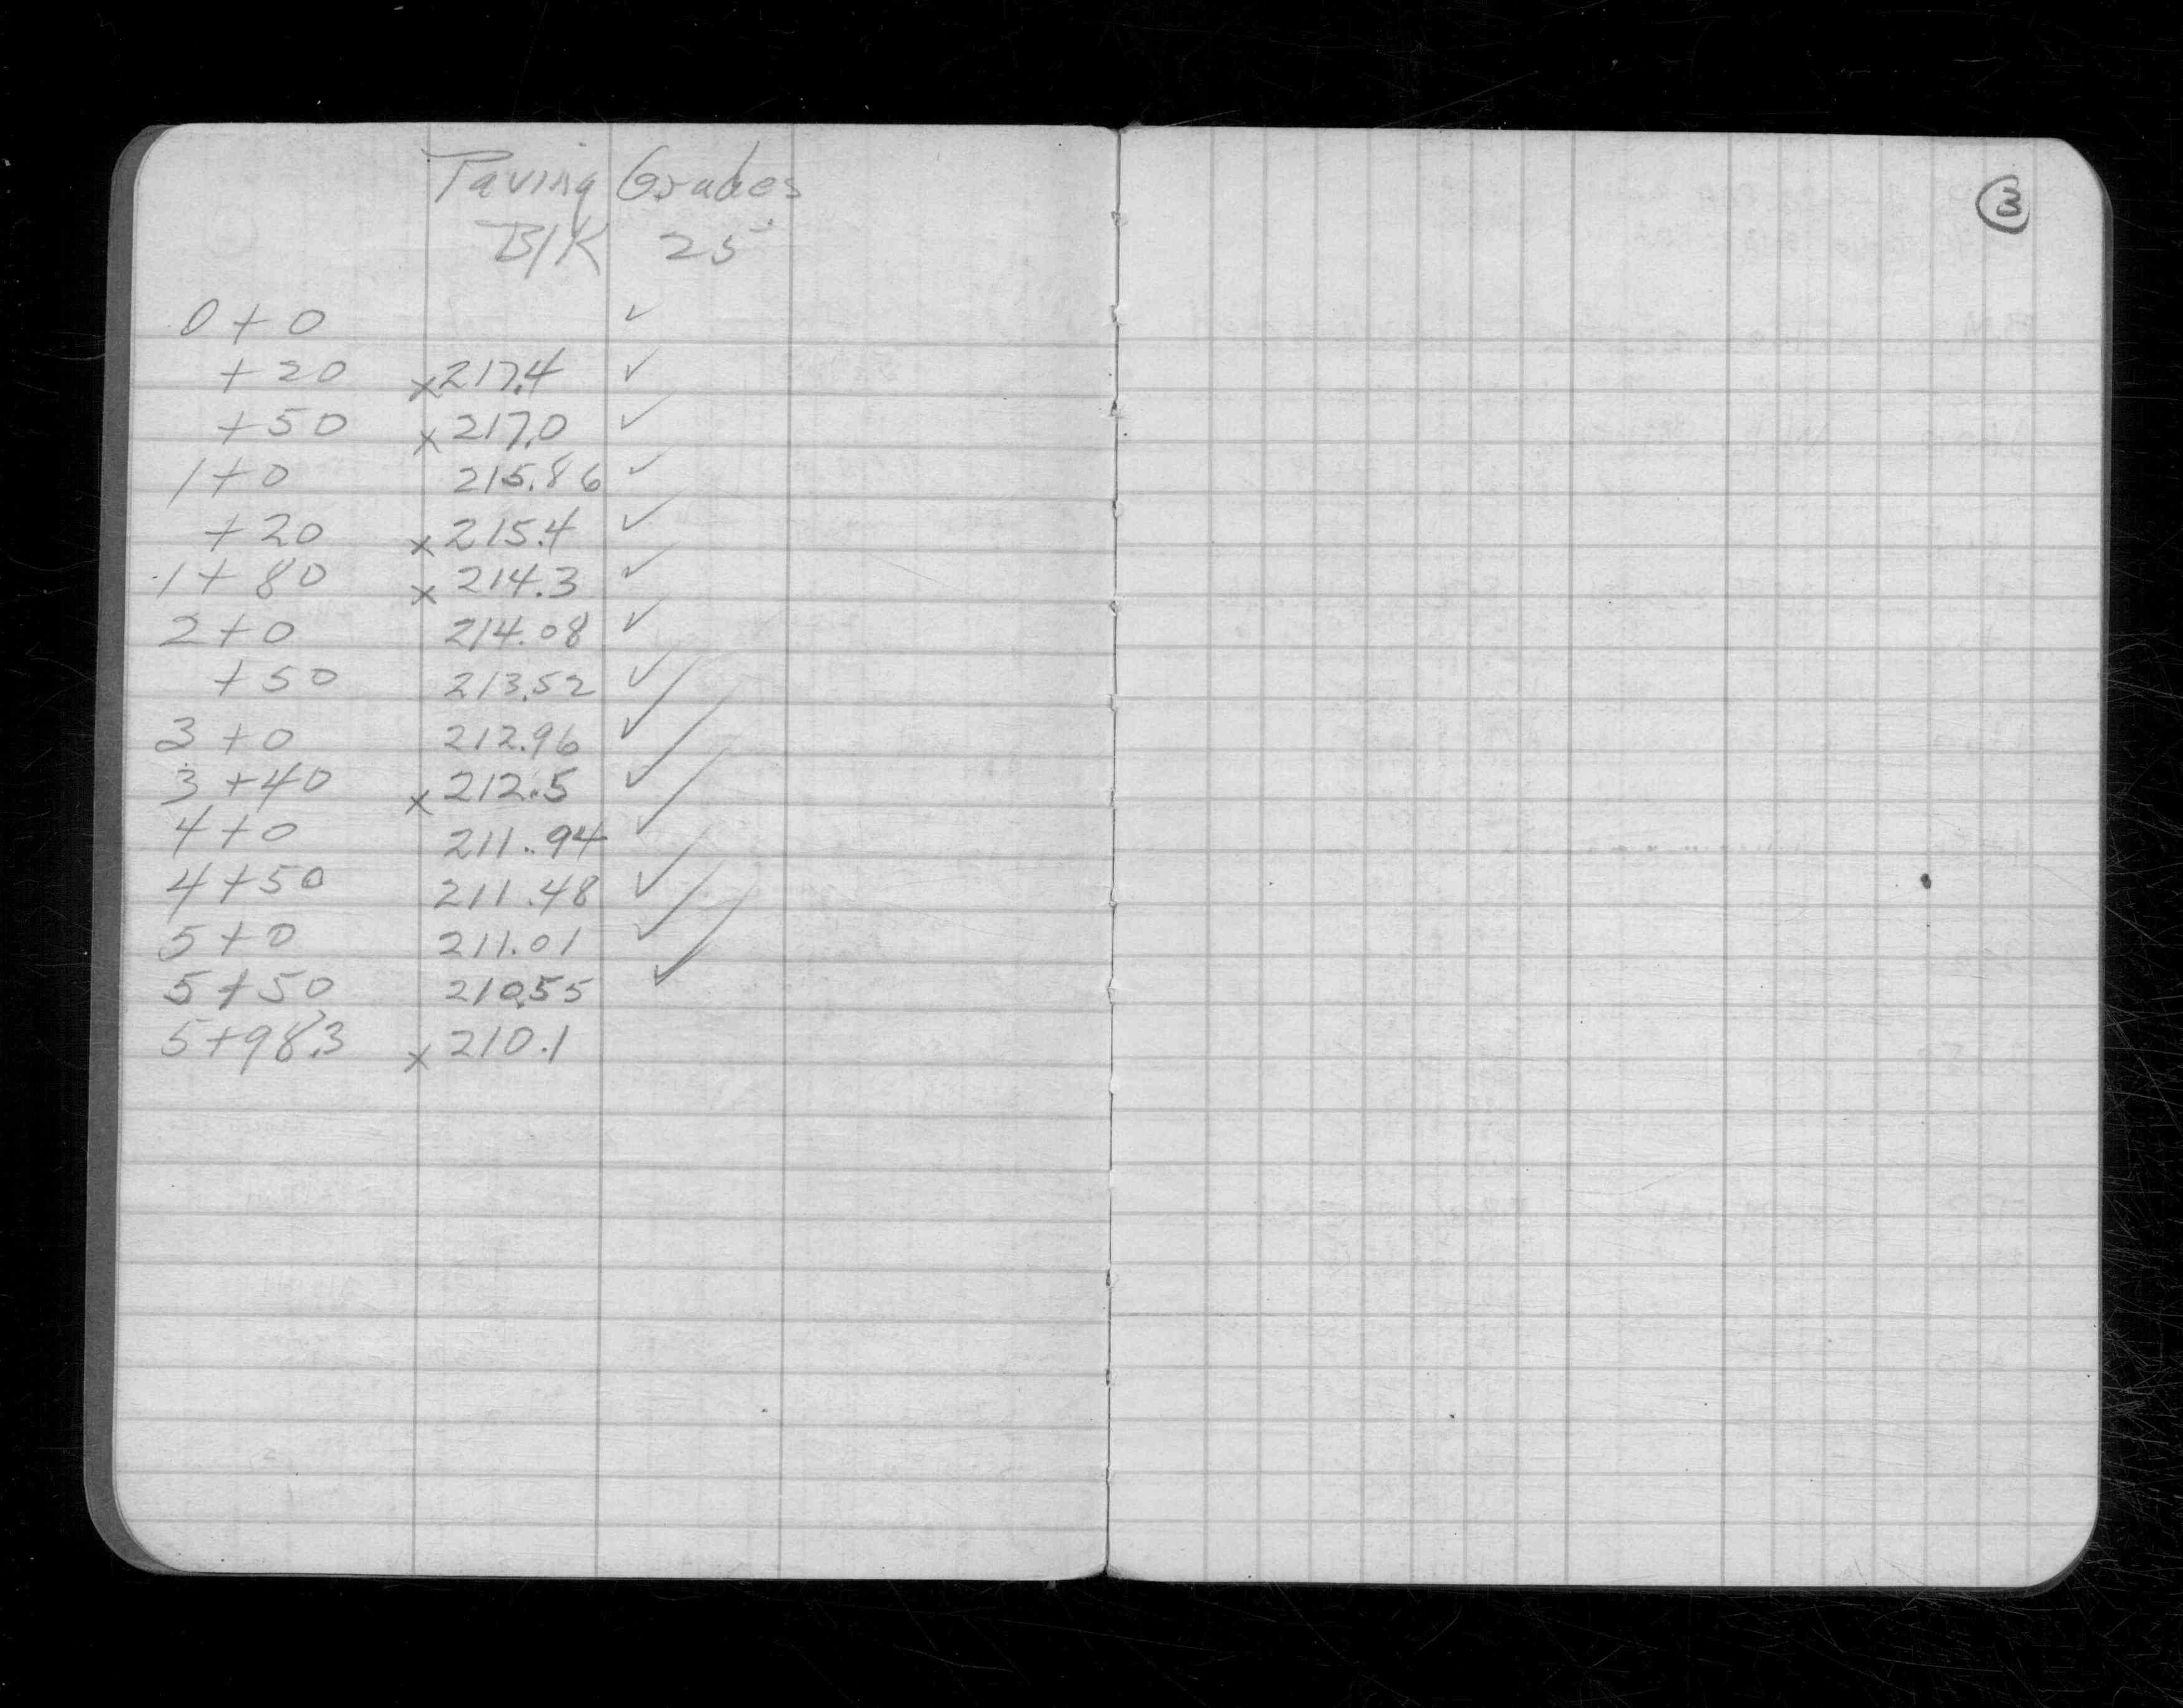 Paving Grades
Blk 25
0+0 ✓
+20 x217.4 ✓
+50 x217.0 ✓
1+0 215.86 ✓
+20 x215.4 ✓
1+80 x214.3 ✓
2+0 214.08 ✓
+50 213.52 ✓
3+0 212.96 ✓
3+40 x212.5 ✓
4+0 211.94 ✓
4+50 211.48 ✓
5+0 211.01 ✓
5+50 210.55 ✓
5+98.3 x210.1
3